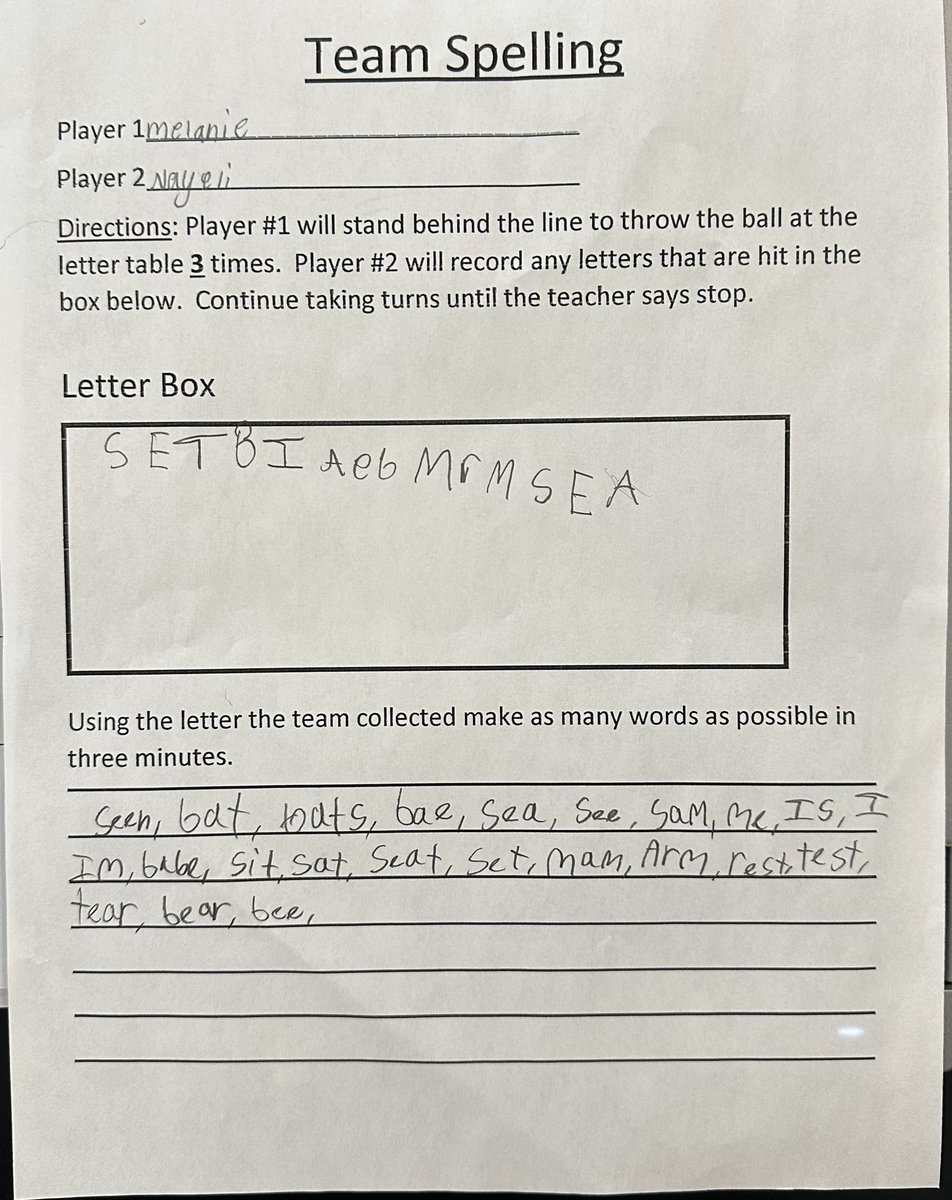 Team Spelling
Player 1 melanie
Player 2 Nayeli
Directions: Player #1 will stand behind the line to throw the ball at the
letter table 3 times. Player #2 will record any letters that are hit in the
box below. Continue taking turns until the teacher says stop.
Letter Box
S E T B I A e b M r M S E A
Using the letter the team collected make as many words as possible in
three minutes.
seen, bat, bats, bae, sea, see, SAM, me, IS, I
IM, babe, sit, sat, Seat, Set, mam, Arm, rest, test,
tear, bear, bee,